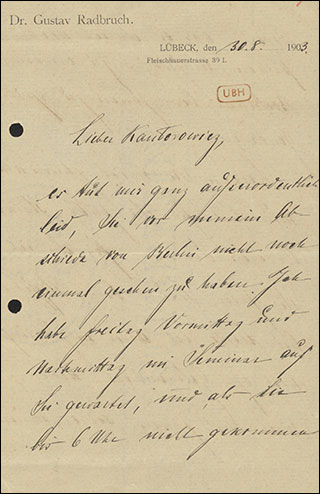 Dr. Gustav Radbruch.
LÜBECK, den 30. 8. 1903.
Fleischhauerstrasse 39 I.
UBH
Lieber Kantorowicz,
es tut mir ganz außerordentlich
leid, Sie vor meinem Ab-
schiede von Berlin nicht noch
einmal gesehen zu haben. Ich
habe Freitag Vormittag und
Nachmittag im Seminar auf
Sie gewartet, und als Sie
bis 6 Uhr nicht gekommen